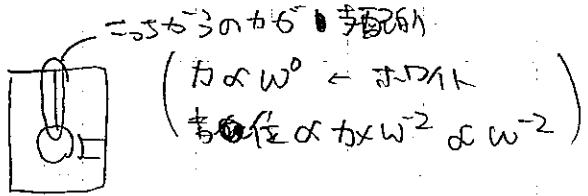 こっちからの力が支配的
力 ∝ ω⁰ ← ホワイト
変位 ∝ 力×ω⁻² ∝ ω⁻²